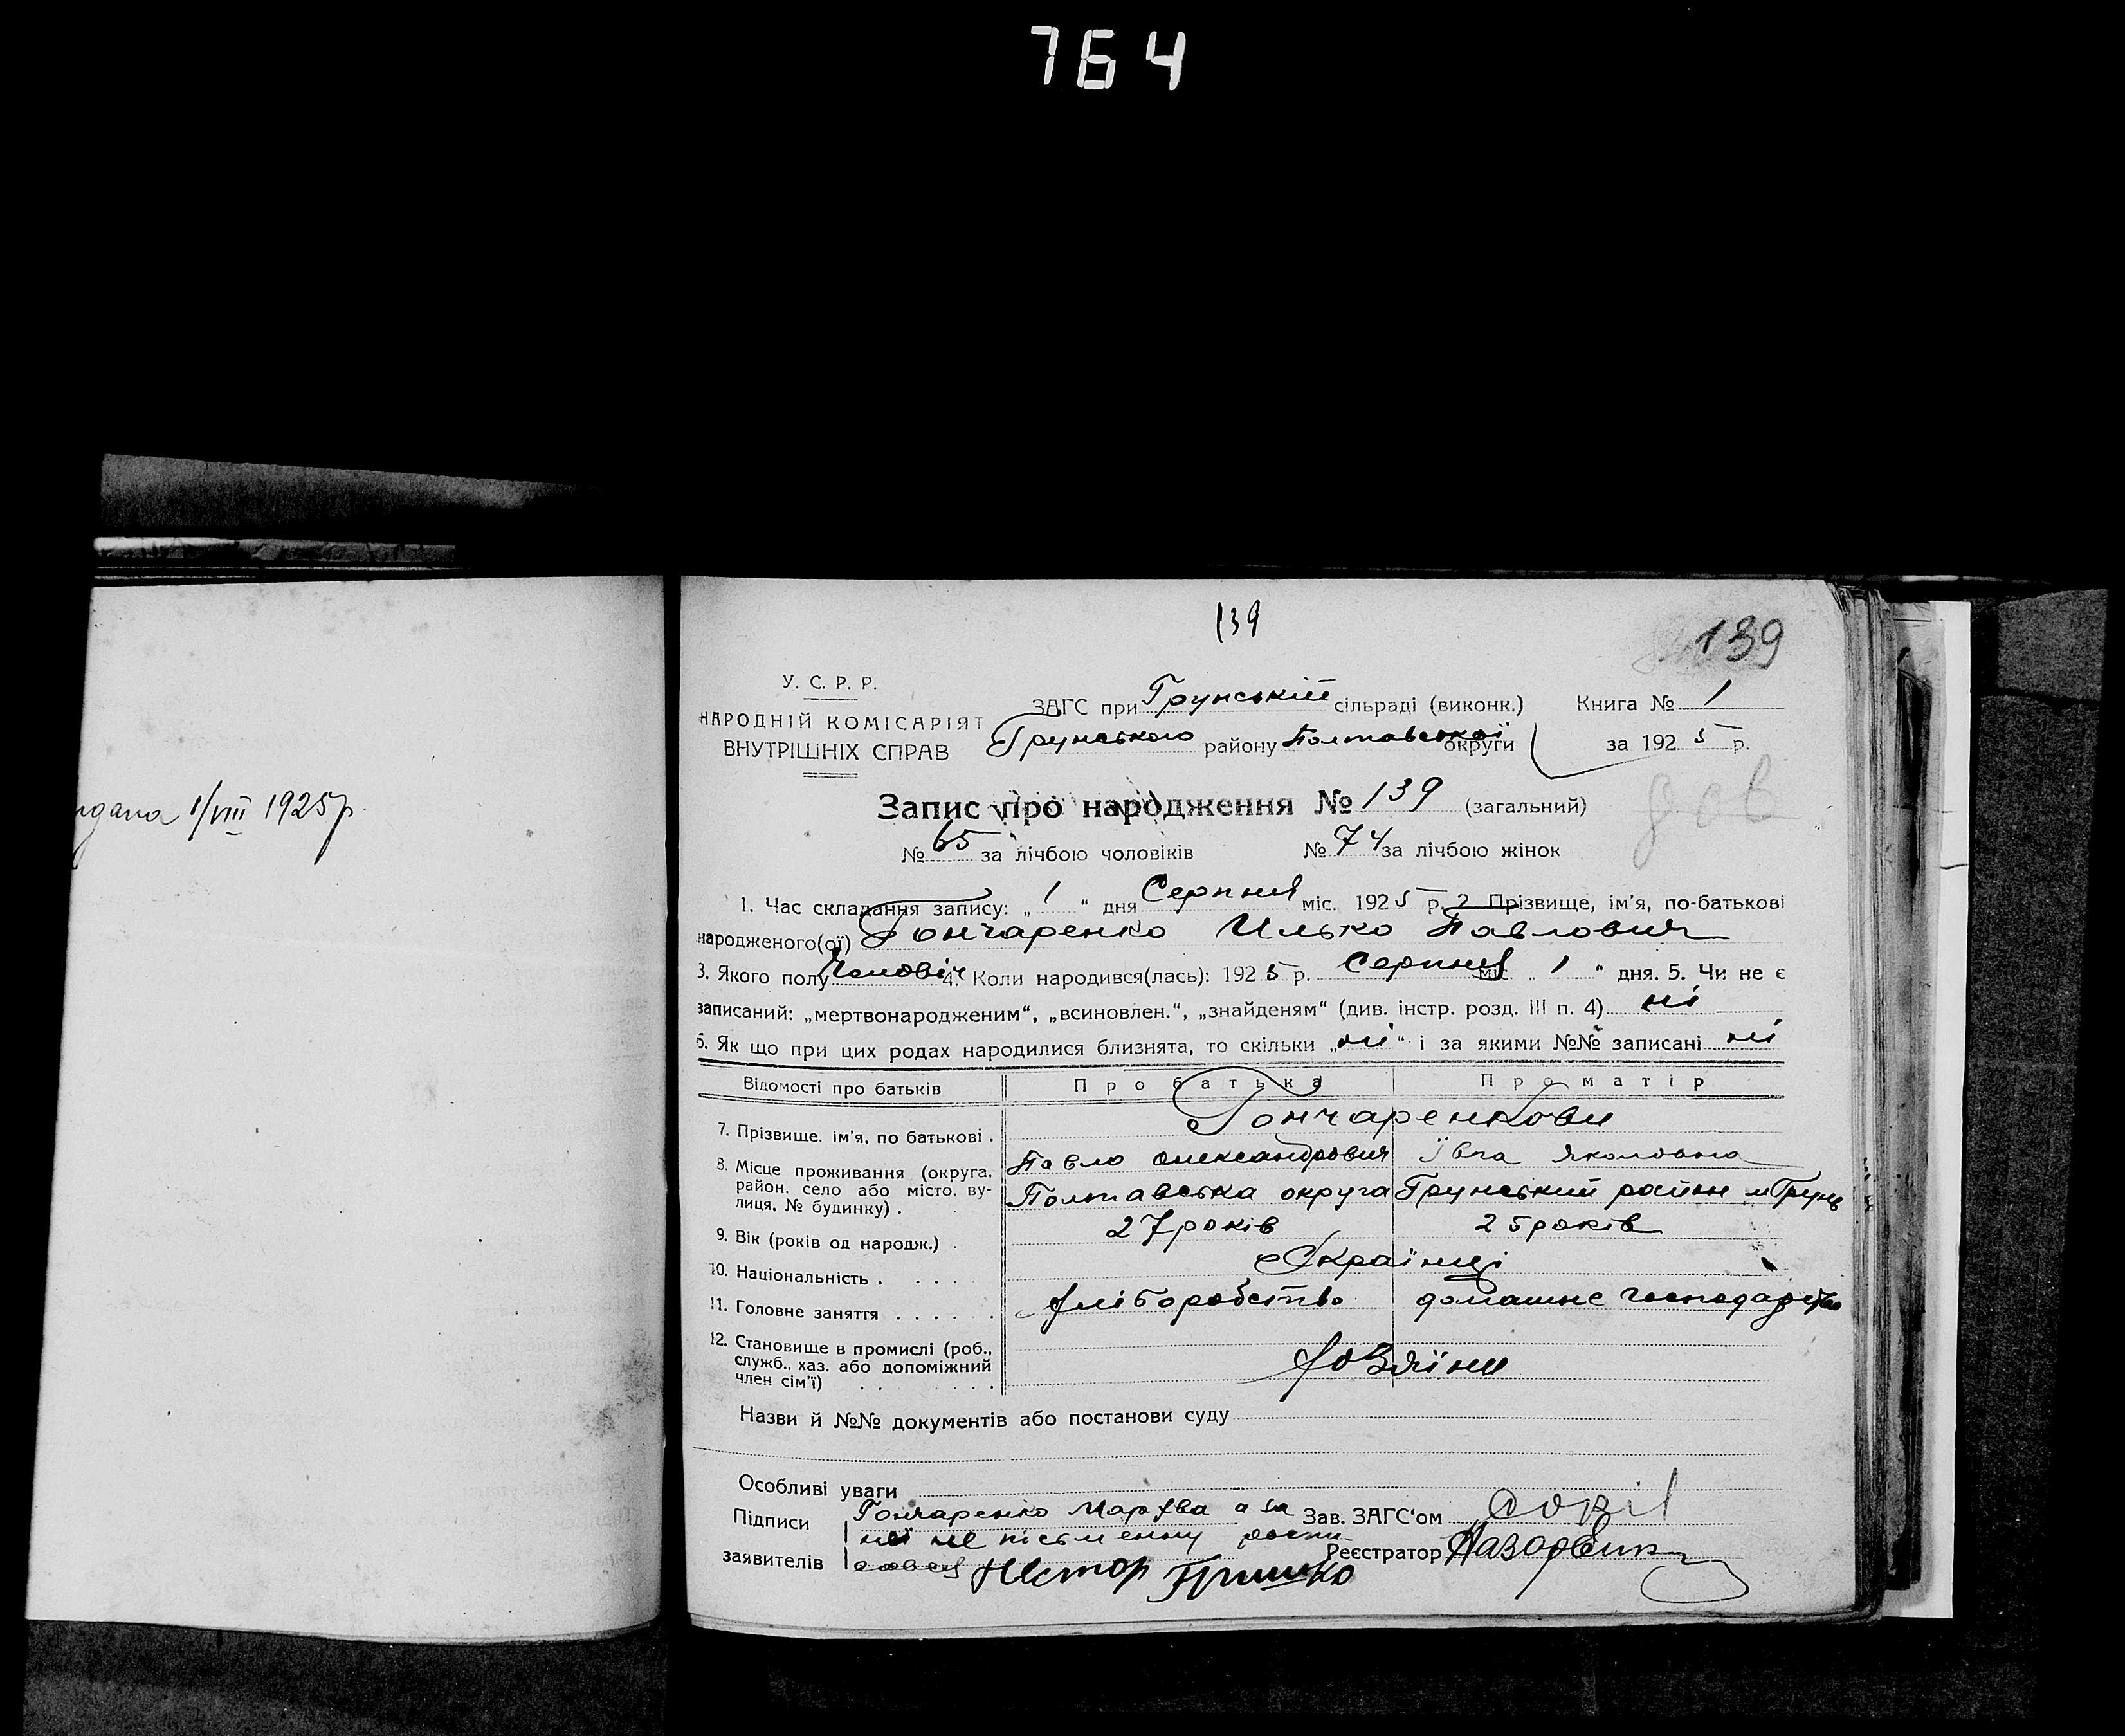 764
139
139
У. С. Р. Р.
НАРОДНІЙ КОМІСАРІЯТ
ВНУТРІШНІХ СПРАВ
ЗАГС при Грунській сільраді (виконк.) Книга № 1
Грунського району Полтавської округи за 1925 р.
1/VIII 1925р.
Запис про народження № 139 (загальний)
№ 65 за лічбою чоловіків № 74 за лічбою жінок
1. Час складання запису: „1“ дня Серпня міс. 1925 р. 2 Прізвище, ім'я, по-батькові
народженого(ої) Гончаренко Илько Павлович
3. Якого полу 4. Коли народився(лась): 1925 р. Серпня міс. „1“ дня. 5. Чи не є
записаний: „мертвонародженим“, „всиновлен.“, „знайденям“ (див. інстр. розд. III п. 4) ні
6. Як що при цих родах народилися близнята, то скільки „ні“ і за якими №№ записані ні
Відомості про батьків Про батька Про матір
7. Прізвище, ім'я, по батькові . Гончаренкови
Павло Олександрович Ївга Яковлівна
8. Місце проживання (округа, район, село або місто, вулиця, № будинку) . Полтавська округа Грунський район м Грунь
9. Вік (років од народж.) . 27 років 25 років
10. Національність . . . . Українці
11. Головне заняття . . . . . . хліборобство домашнє господарство
12. Становище в промислі (роб., служб., хаз. або допоміжний член сім'ї) . . . . Хозяїни
Назви й №№ документів або постанови суду
Особливі уваги
Підписи Гончаренко а за Зав. ЗАГС'ом
неї не письменну роспи-
заявителів сався Нестор Гришко Реєстратор